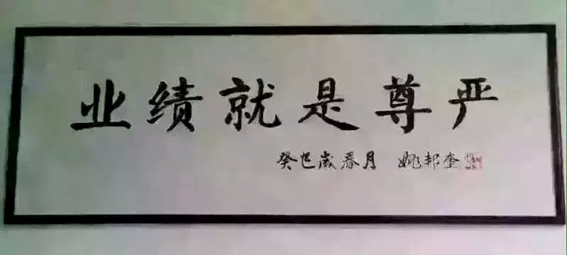 业绩就是尊严
癸巳岁春月 姚邦奎